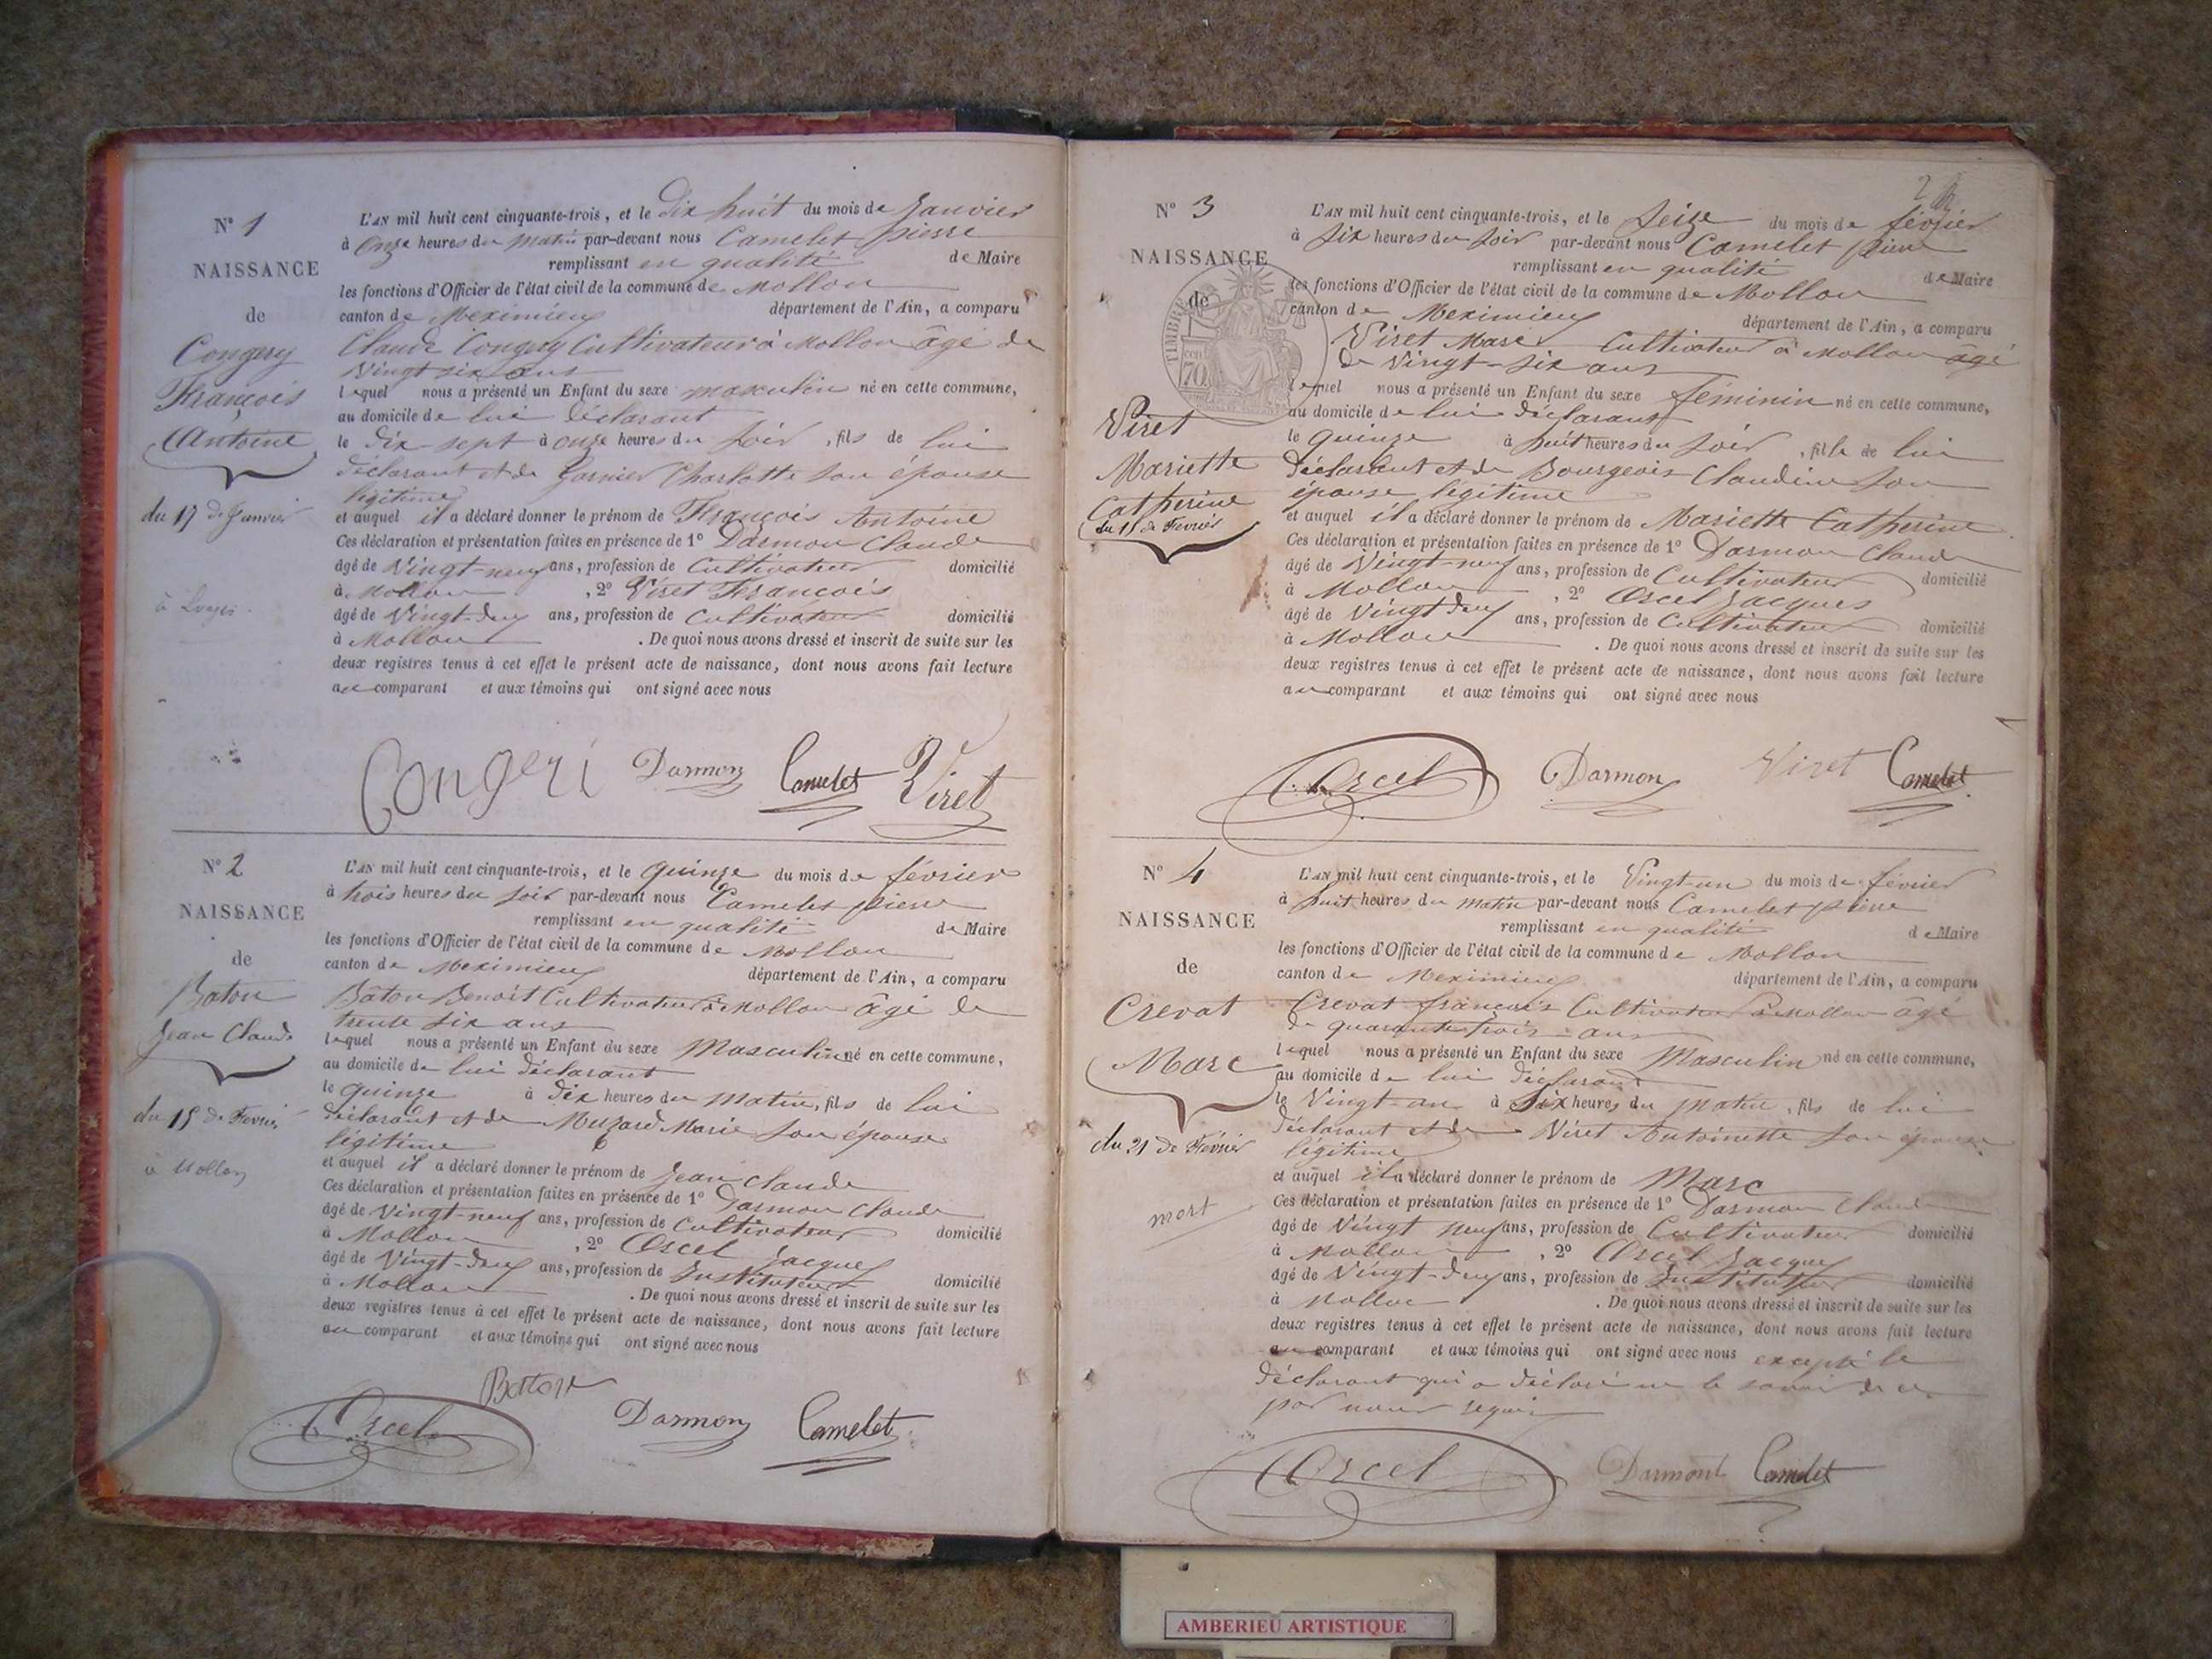 N° 1
NAISSANCE
de
Congery
François
Antoine
du 17 de Janvier
L'AN mil huit cent cinquante-trois, et le Dix huit du mois de Janvier
à Onze heures du matin par-devant nous Camelet pierre
remplissant en qualité de Maire
les fonctions d'Officier de l'état civil de la commune de Mollon
canton de Meximieux département de l'Ain, a comparu
Claude Congery Cultivateur à Mollon âgé de
Vingt six ans
lequel nous a présenté un Enfant du sexe masculin né en cette commune,
au domicile de lui déclarant
le dix-sept à onze heures du soir, fils de lui
déclarant et de Garnier Charlotte son épouse
légitime
et auquel il a déclaré donner le prénom de François Antoine
Ces déclaration et présentation faites en présence de 1° Darmon Claude
âgé de Vingt-neuf ans, profession de Cultivateur domicilié
à Mollon, 2° Viret François
âgé de Vingt-deux ans, profession de Cultivateur domicilié
à Mollon. De quoi nous avons dressé et inscrit de suite sur les
deux registres tenus à cet effet le présent acte de naissance, dont nous avons fait lecture
au comparant et aux témoins qui ont signé avec nous
Congeri Darmon Camelet Viret
N° 2
NAISSANCE
de
Baton
Jean Claude
du 15 de Fevrier
à Mollon
L'AN mil huit cent cinquante-trois, et le quinze du mois de février
à trois heures du soir par-devant nous Camelet pierre
remplissant en qualité de Maire
les fonctions d'Officier de l'état civil de la commune de Mollon
canton de Meximieux département de l'Ain, a comparu
Bâton Benoit Cultivateur à Mollon âgé de
trente six ans
lequel nous a présenté un Enfant du sexe Masculin né en cette commune,
au domicile de lui déclarant
le quinze à dix heures du matin, fils de lui
déclarant et de Muzard Marie son épouse
légitime
et auquel il a déclaré donner le prénom de Jean Claude
Ces déclaration et présentation faites en présence de 1° Darmon Claude
âgé de Vingt-neuf ans, profession de Cultivateur domicilié
à Mollon, 2° Orcel Jacques
âgé de Vingt-deux ans, profession de Instituteur domicilié
à Mollon. De quoi nous avons dressé et inscrit de suite sur les
deux registres tenus à cet effet le présent acte de naissance, dont nous avons fait lecture
au comparant et aux témoins qui ont signé avec nous
Baton
Orcel Darmon Camelet
2
N° 3
NAISSANCE
de
TIMBRE
70
Viret
Mariette
Catherine
du 15 de Fevrier
L'AN mil huit cent cinquante-trois, et le Seize du mois de février
à six heures du soir par-devant nous Camelet pierre
remplissant en qualité de Maire
les fonctions d'Officier de l'état civil de la commune de Mollon
canton de Meximieux département de l'Ain, a comparu
Viret Marc Cultivateur à Mollon âgé
de Vingt-six ans
lequel nous a présenté un Enfant du sexe féminin né en cette commune,
au domicile de lui déclarant
le quinze à huit heures du soir, fille de lui
déclarant et de Bourgeois Claudine son
épouse légitime
et auquel il a déclaré donner le prénom de Mariette Catherine
Ces déclaration et présentation faites en présence de 1° Darmon Claude
âgé de Vingt-neuf ans, profession de Cultivateur domicilié
à Mollon, 2° Orcel Jacques
âgé de Vingt-deux ans, profession de Cultivateur domicilié
à Mollon. De quoi nous avons dressé et inscrit de suite sur les
deux registres tenus à cet effet le présent acte de naissance, dont nous avons fait lecture
au comparant et aux témoins qui ont signé avec nous
Orcel Darmon Viret Camelet
N° 4
NAISSANCE
de
Crevat
Marc
du 21 de Février
mort
L'AN mil huit cent cinquante-trois, et le Vingt-un du mois de février
à huit heures du matin par-devant nous Camelet pierre
remplissant en qualité de Maire
les fonctions d'Officier de l'état civil de la commune de Mollon
canton de Meximieux département de l'Ain, a comparu
Crevat françois Cultivateur à Mollon âgé
de quarante trois ans
lequel nous a présenté un Enfant du sexe Masculin né en cette commune,
au domicile de lui déclarant
le Vingt-un à Six heures du matin, fils de lui
déclarant et de Viret Antoinette son épouse
légitime
et auquel il a déclaré donner le prénom de Marc
Ces déclaration et présentation faites en présence de 1° Darmon Claude
âgé de Vingt neuf ans, profession de Cultivateur domicilié
à Mollon, 2° Orcel Jacques
âgé de Vingt-deux ans, profession de Instituteur domicilié
à Mollon. De quoi nous avons dressé et inscrit de suite sur les
deux registres tenus à cet effet le présent acte de naissance, dont nous avons fait lecture
au comparant et aux témoins qui ont signé avec nous excepté le
déclarant qui a déclaré ne le savoir de ce
par nous requis
Orcel Darmont Camelet
AMBERIEU ARTISTIQUE